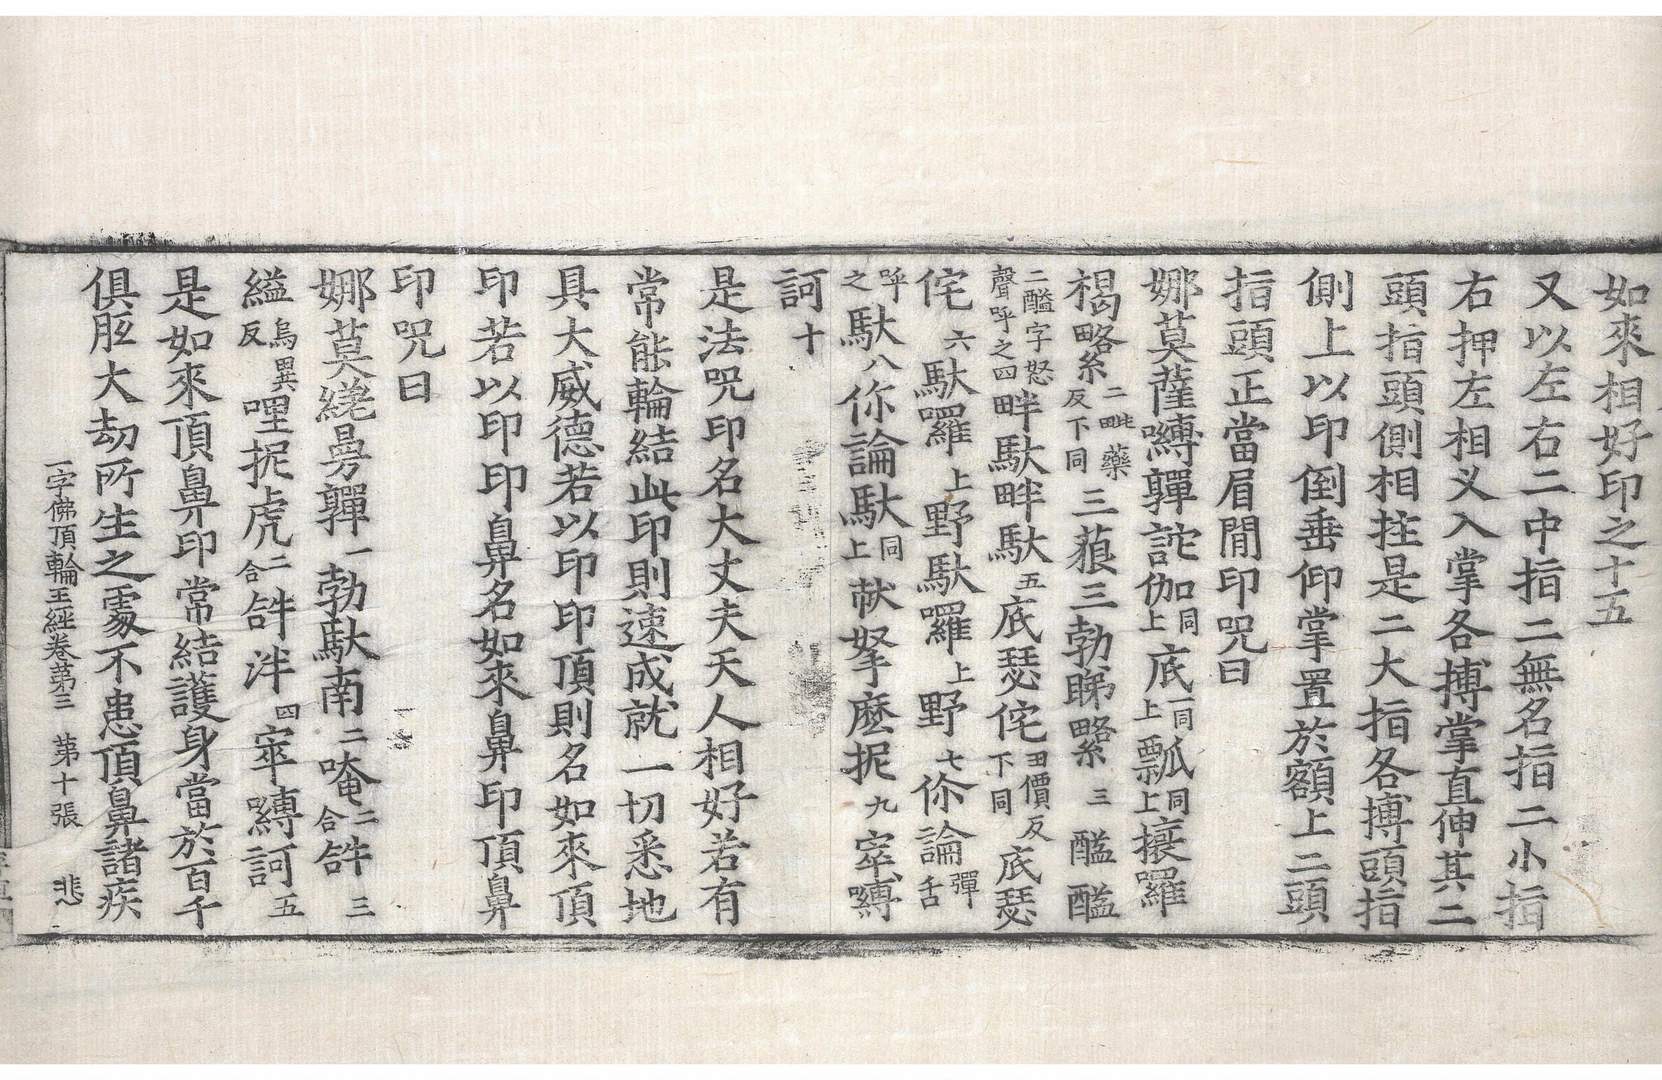 如來相好印之十五
又以左右二中指二無名指二小指
右押左相叉入掌各搏掌直伸其二
頭指頭側相拄是二大指各搏頭指
側上以印倒垂仰掌置於額上二頭
指頭正當眉間印呪曰
娜莫薩嚩鞞詑伽同上底一同上瓢同上㩲囉
㮹略系二毗藥反下同三蒗三勃睇略系三醯醯
二醯字怒聲呼之四畔馱畔馱五底瑟侘丑價反下同底瑟
侘六馱囉上野馱囉上野七你論彈舌
呼之馱八你論馱同上献拏麽抳九窣嚩
訶十
是法呪印名大丈夫天人相好若有
常能輪結此印則速成就一切悉地
具大威德若以印印頂則名如來頂
印若以印印鼻名如來鼻印頂鼻
印呪曰
娜莫繞曷鞞一勃馱南二唵二合𤙖三
縊烏異反哩抳虎二合𤙖泮四窣嚩訶五
是如來頂鼻印常結護身當於百千
俱胝大劫所生之處不患頂鼻諸疾
一字佛頂輪王經卷第三　第十張　悲